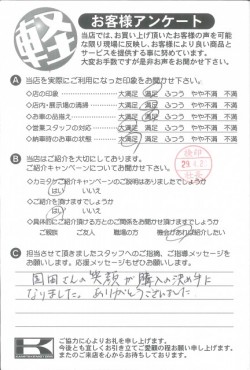 軽
お客様アンケート
当店では、お買い上げ頂いたお客様の声を可能
な限り現場に反映し、お客様により良い商品と
サービスを提供する事に努めています。
大変お手数ですが是非お声をお聞かせ下さい。
A 当店を実際にご利用になった印象をお聞かせ下さい。
○店の印象 大満足 満足 ふつう やや不満 不満
○店内・展示場の清掃 大満足 満足 ふつう やや不満 不満
○お車の品揃え 大満足 満足 ふつう やや不満 不満
○営業スタッフの対応 大満足 満足 ふつう やや不満 不満
○納車時のお車の状態 大満足 満足 ふつう やや不満 不満
B 当店はご紹介を大切にしております。
ご紹介キャンペーンについてお聞かせ下さい。
○カミタケご紹介キャンペーンのご説明はありましたでしょうか
はい いいえ
○ご紹介を頂けますでしょうか
はい いいえ
○具体的にご紹介頂ける方とのご関係をお聞かせ頂けますでしょうか
ご親族 ご友人 職場の方 機会があれば紹介したい
C 担当させて頂きましたスタッフへのご指摘、ご指導メッセージを
お願いします。応援メッセージもぜひお願いします。
さんの笑顔が購入の決め手に
なりました。ありがとうございました
K
ご協力に心よりお礼を申し上げます。
今後とも宜しくお引き立てご愛顧の程お願い申し上げます。
またのご来店を心からお待ちしております。